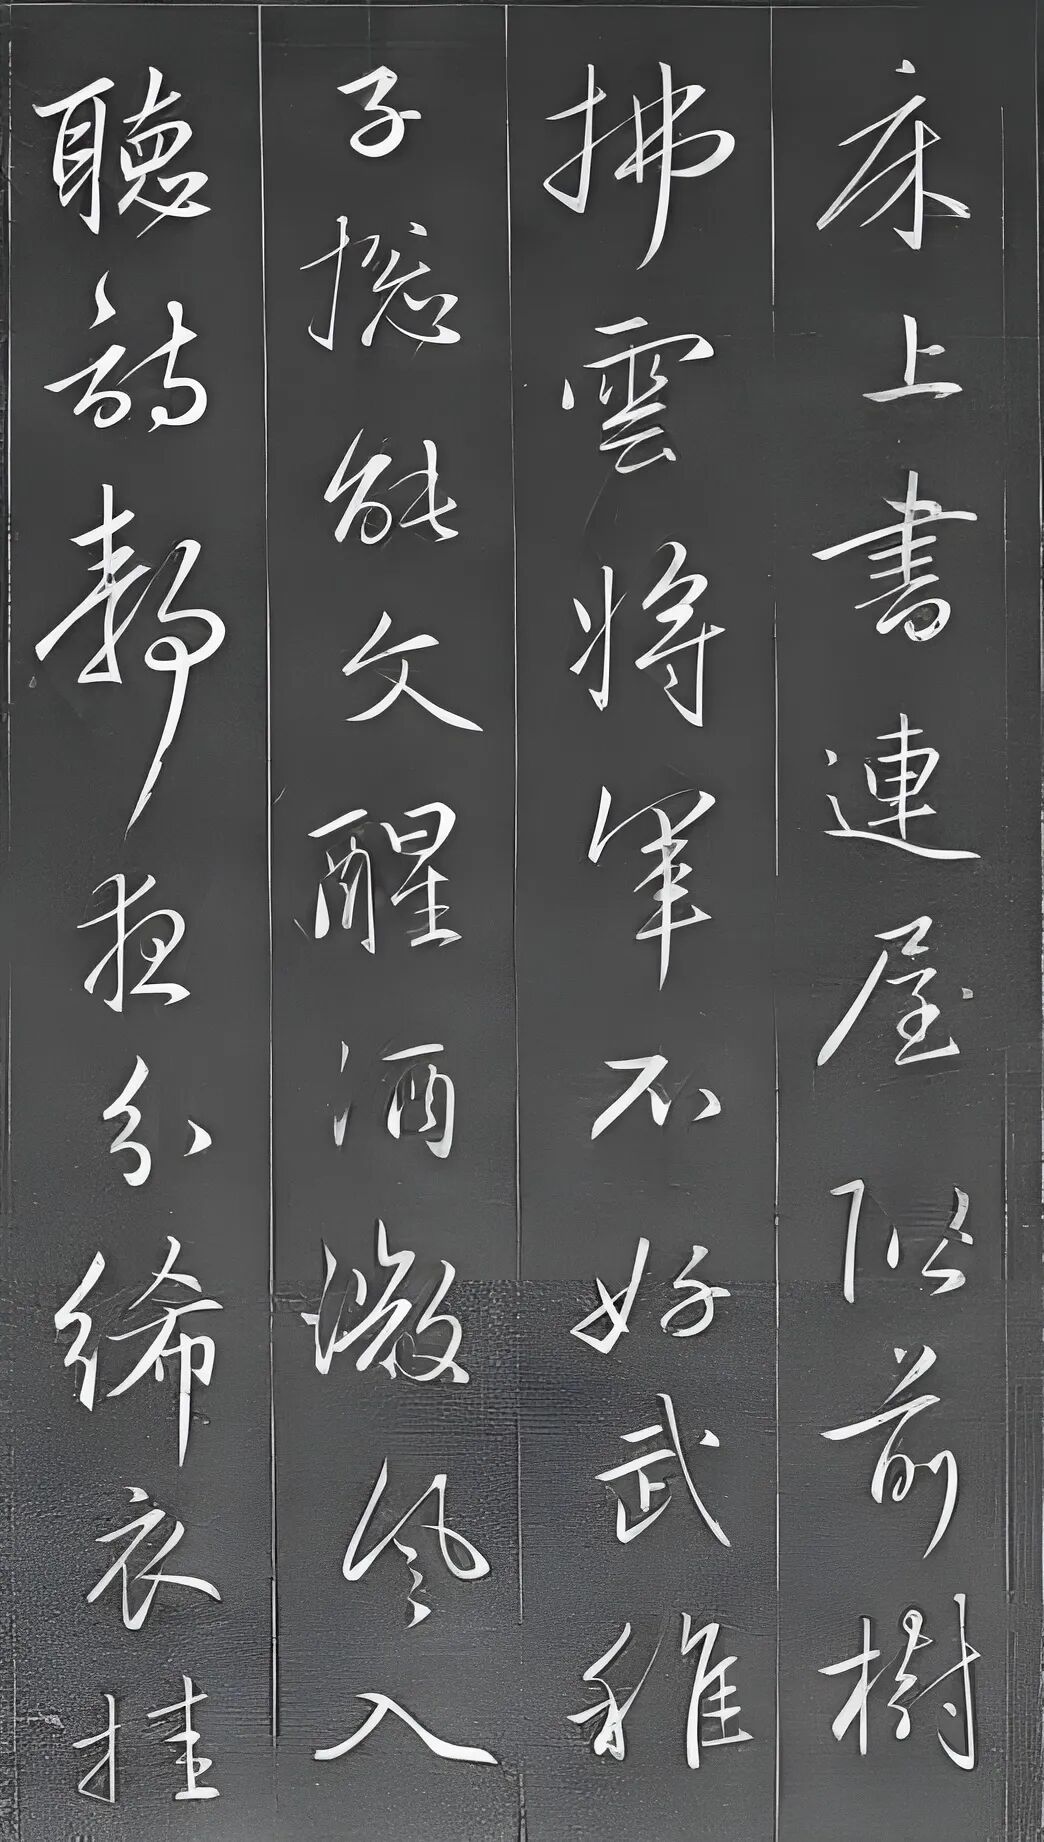 床上書連屋階前樹
拂雲將軍不好武稚
子捴能文醒酒微風入
聽詩靜夜分絺衣挂